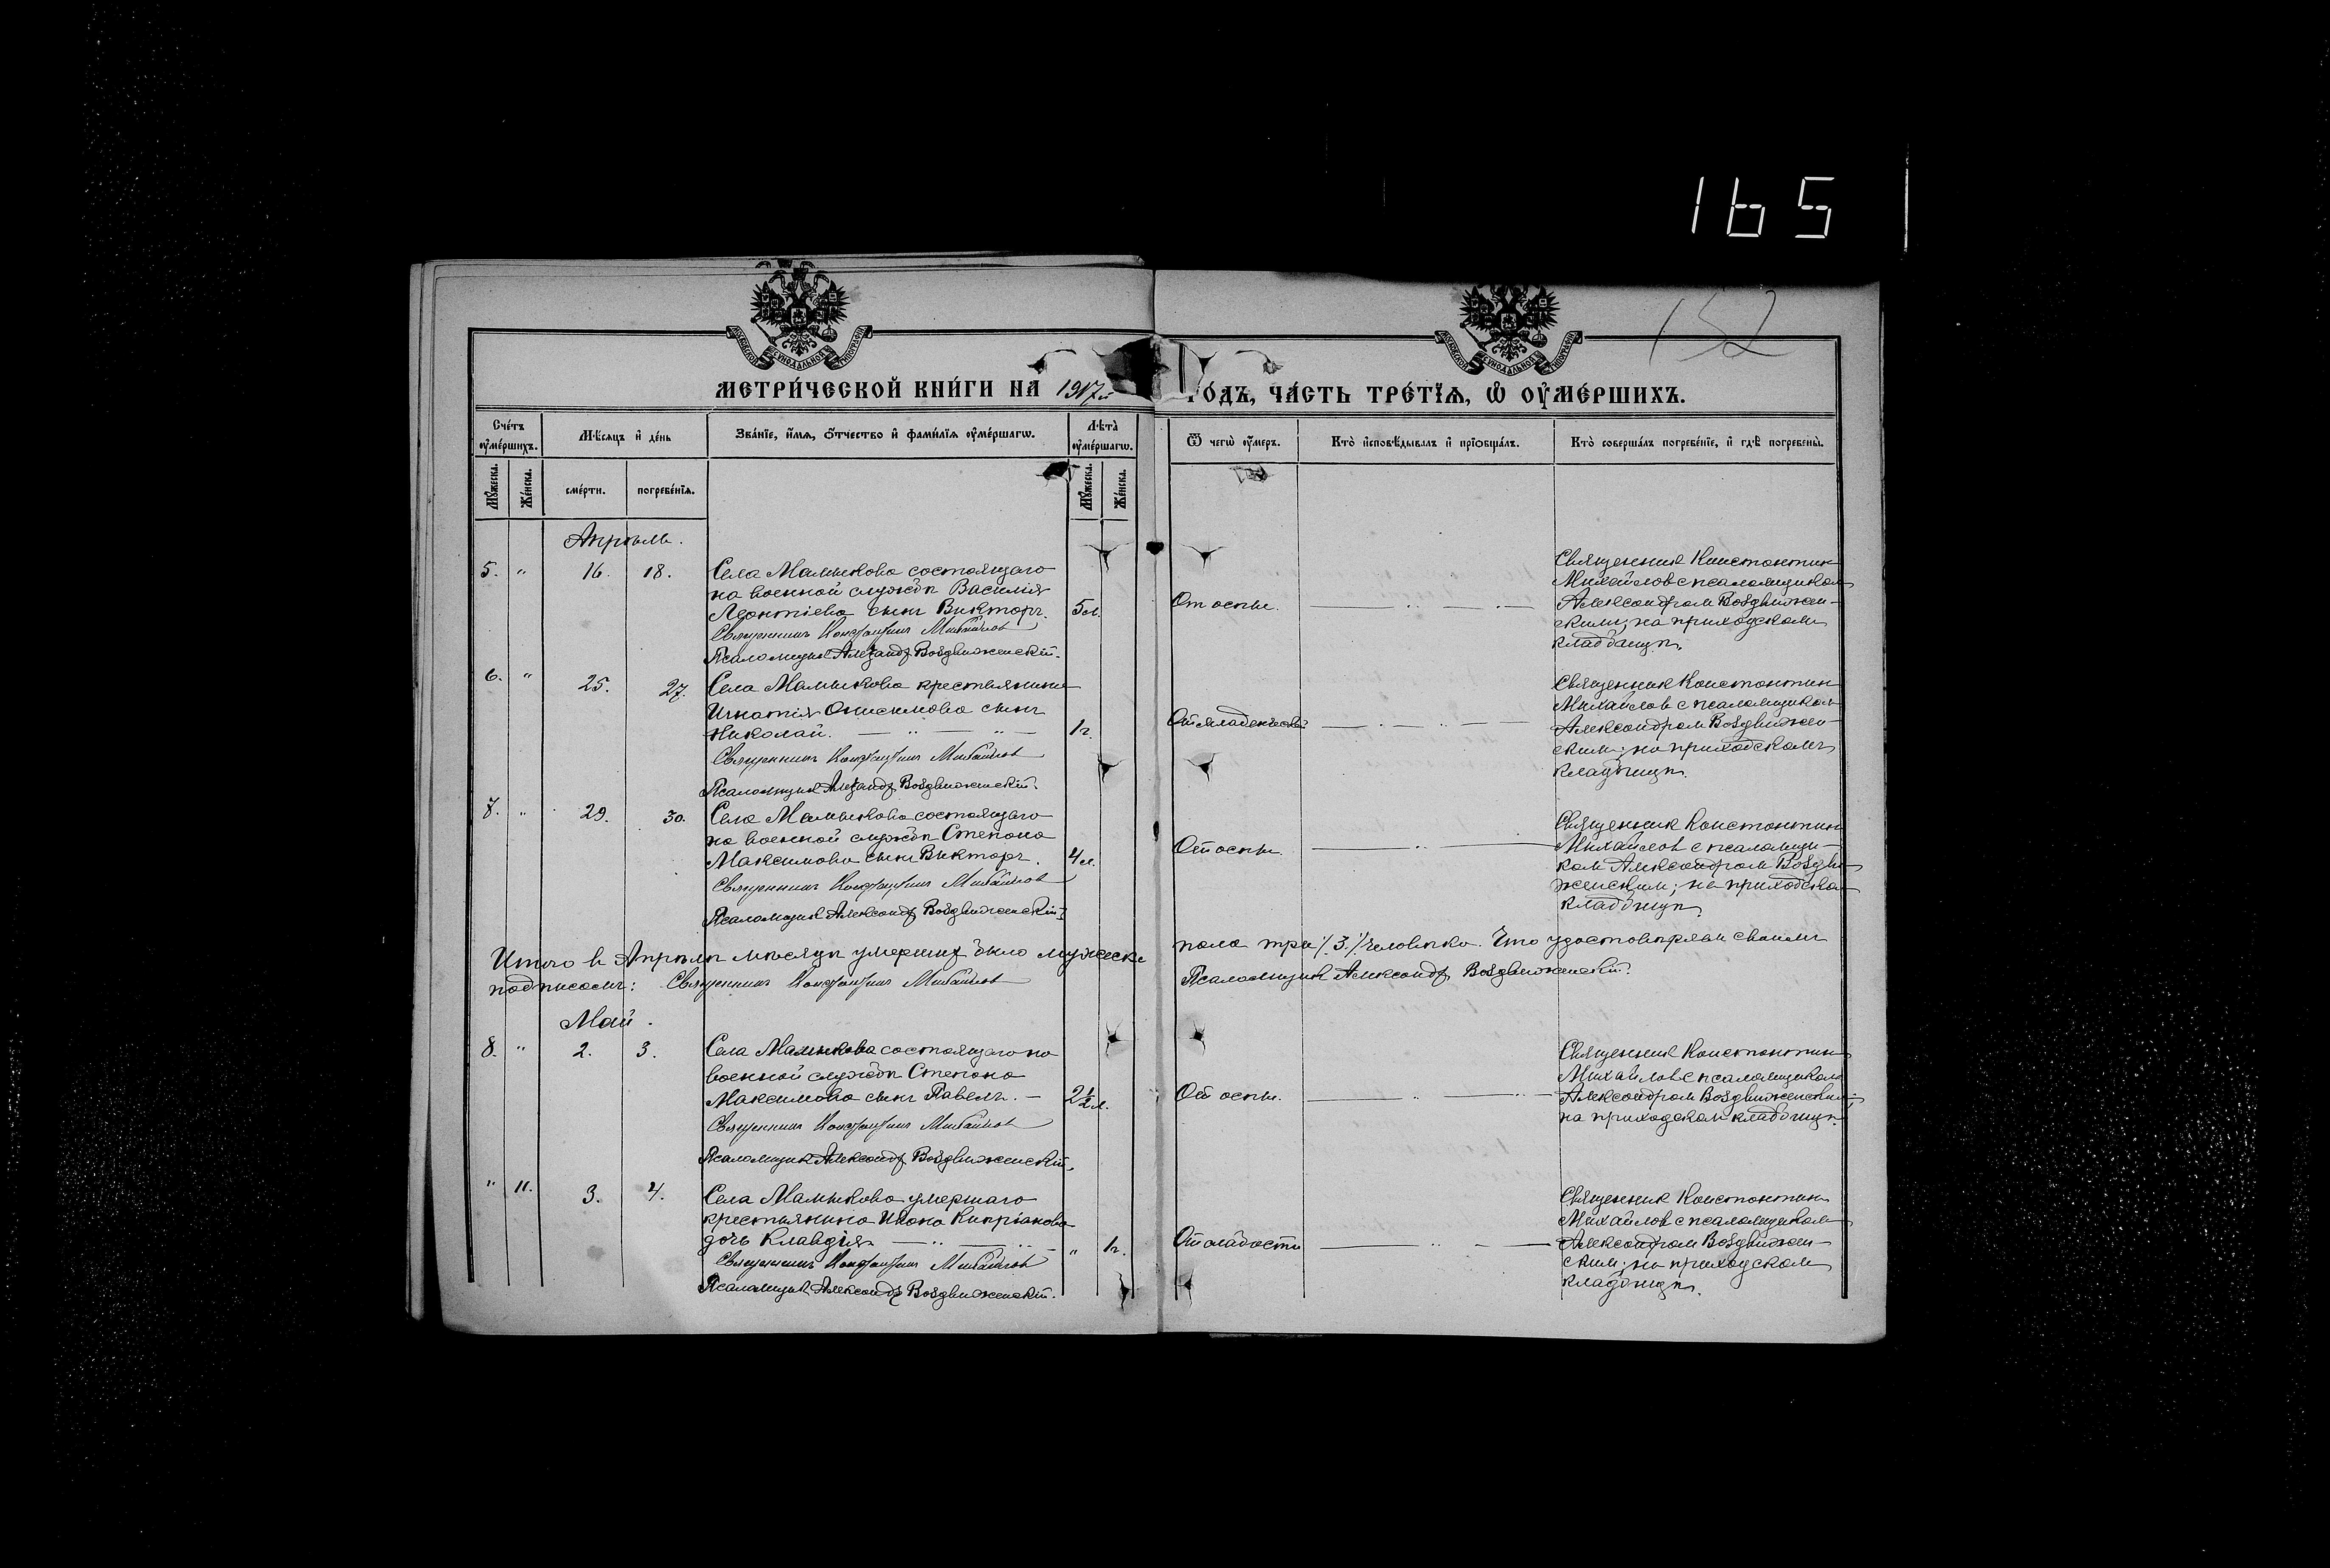 165
152
МОСКОВСКОЙ СУНОДАЛЬНОЙ ТИПОГРАФІИ
МОСКОВСКОЙ СУНОДАЛЬНОЙ ТИПОГРАФІИ
МЕТРИ́ЧЕСКОЙ КНИ́ГИ НА 1917й
ГО́ДЪ, ЧА́СТЬ ТРЕ́ТЇѦ, Ѡ҆ ОУ҆МЕ́РШИХЪ.
Сче́тъ оу҆ме́ршихъ.
Мѣ́сяцъ и҆ де́нь
Зва́нїе, и҆́мѧ, ѻ҆́тчество и҆ фами́лїѧ оу҆ме́ршагѡ.
Лѣ́та оу҆ме́ршагѡ.
Ѿ чегѡ̀ оу҆́меръ.
Кто̀ и҆сповѣ́дывалъ и҆ прїѡбща́лъ.
Кто̀ соверша́лъ погребе́нїе, и҆ гдѣ̀ погребены̀.
Мꙋ́жеска.
Же́нска.
сме́рти.
погребе́нїѧ.
Мꙋ́жеска.
Же́нска.
Апрѣль.
5. " 16. 18.
Села Малыкова состоящаго
на военной службѣ Василія
Леонтіева сынъ Викторъ. 5 л.
Священникъ Константинъ Михайлов
Псаломщик Александр Воздвиженскій.
От оспы.
Священник Константин
Михайлов с псаломщиком
Александром Воздвижен-
ским; на приходском
кладбищѣ.
6. " 25. 27.
Села Малыкова крестьянина
Игнатія Онисимова сынъ
Николай. 1 г.
Священникъ Константинъ Михайлов
Псаломщик Александр Воздвиженскій.
От младенческой
Священник Константин
Михайлов с псаломщиком
Александром Воздвижен-
ским; на приходскомъ
кладбищѣ.
7. " 29. 30.
Села Малыкова состоящаго
на военной службѣ Степана
Максимова сынъ Викторъ. 4 л.
Священникъ Константинъ Михайлов
Псаломщик Александр Воздвиженскій
От оспы.
Священник Константин
Михайлов с псаломщи-
ком Александром Воздви-
женским; на приходском
кладбищѣ.
Итого в Апрѣлѣ мѣсяцѣ умерших было мужеска
пола три /3./ человѣка. Что удостовѣряем своимъ
подписомъ: Священникъ Константинъ Михайлов
Псаломщик Александр Воздвиженскій.
Май.
8. " 2. 3.
Села Малыкова состоящаго на
военной службѣ Степана
Максимова сынъ Павелъ. 2½ л.
Священникъ Константинъ Михайлов
Псаломщик Александр Воздвиженскій.
От оспы.
Священник Константин
Михайлов с псаломщиком
Александром Воздвиженским;
на приходском кладбищѣ.
" 11. 3. 4.
Села Малыкова умершаго
крестьянина Ивана Кипріанова
дочь Клавдія " 1 г.
Священникъ Константинъ Михайлов
Псаломщик Александр Воздвиженскій.
От слабости
Священник Константин
Михайлов с псаломщиком
Александром Воздвижен-
ским; на приходском
кладбищѣ.